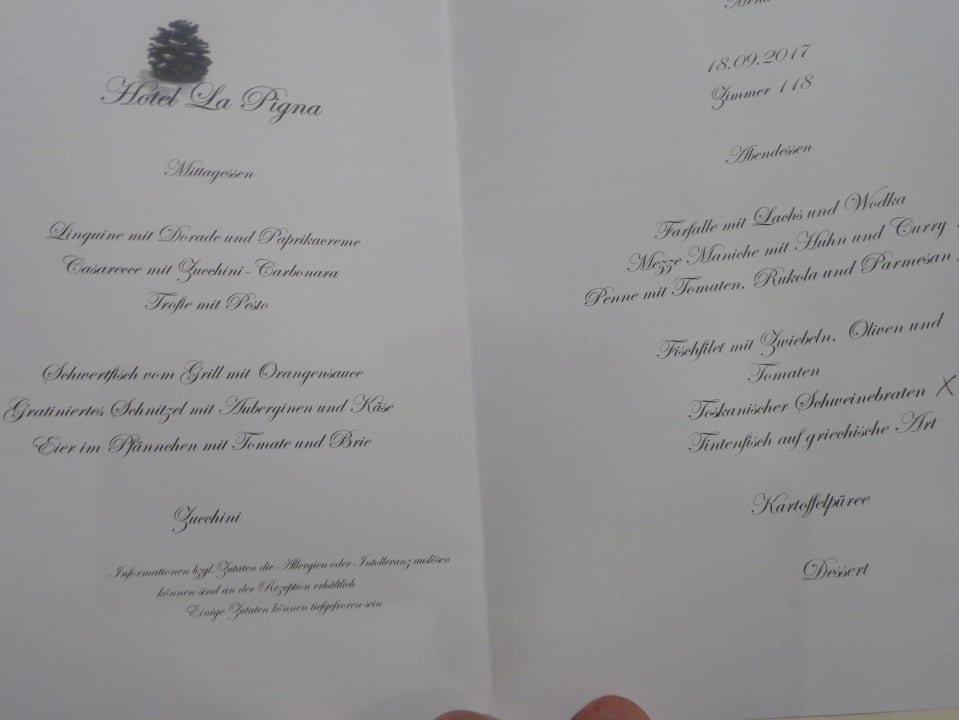 Hotel La Pigna
Mittagessen
Linguine mit Dorade und Paprikacreme
Casarecce mit Zucchini-Carbonara
Trofie mit Pesto
Schwertfisch vom Grill mit Orangensauce
Gratiniertes Schnitzel mit Auberginen und Käse
Eier im Pfännchen mit Tomate und Brie
Zucchini
Informationen bzgl. Zutaten die Allergien oder Intolleranz auslösen
können sind an der Rezeption erhältlich
Einige Zutaten können tiefgefroren sein
Menü
18.09.2017
Zimmer 118
Abendessen
Farfalle mit Lachs und Wodka
Mezze Maniche mit Huhn und Curry
Penne mit Tomaten, Rukola und Parmesan
Fischfilet mit Zwiebeln, Oliven und
Tomaten
Toskanischer Schweinebraten X
Tintenfisch auf griechische Art
Kartoffelpüree
Dessert